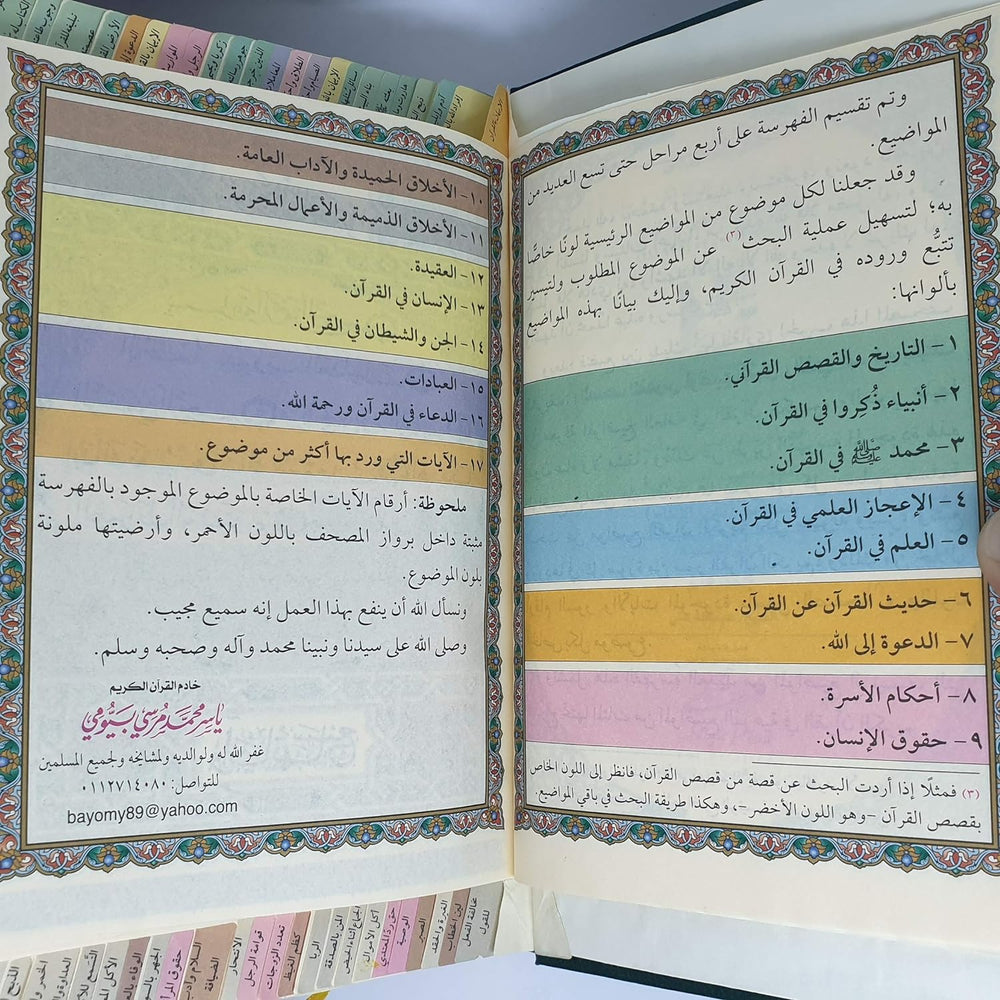 وتم تقسيم الفهرسة على أربع مراحل حتى تسع العديد من
المواضيع.
وقد جعلنا لكل موضوع من المواضيع الرئيسية لونًا خاصًّا
به؛ لتسهيل عملية البحث(٣) عن الموضوع المطلوب ولتيسير
تتبُّع وروده في القرآن الكريم، وإليك بيانًا بهذه المواضيع
بألوانها:
١- التاريخ والقصص القرآني.
٢- أنبياء ذُكِروا في القرآن.
٣- محمد ﷺ في القرآن.
٤- الإعجاز العلمي في القرآن.
٥- العلم في القرآن.
٦- حديث القرآن عن القرآن.
٧- الدعوة إلى الله.
٨- أحكام الأسرة.
٩- حقوق الإنسان.
(٣) فمثلًا إذا أردت البحث عن قصة من قصص القرآن، فانظر إلى اللون الخاص
بقصص القرآن -وهو اللون الأخضر-، وهكذا طريقة البحث في باقي المواضيع.
١٠- الأخلاق الحميدة والآداب العامة.
١١- الأخلاق الذميمة والأعمال المحرمة.
١٢- العقيدة.
١٣- الإنسان في القرآن.
١٤- الجن والشيطان في القرآن.
١٥- العبادات.
١٦- الدعاء في القرآن ورحمة الله.
١٧- الآيات التي ورد بها أكثر من موضوع.
ملحوظة: أرقام الآيات الخاصة بالموضوع الموجود بالفهرسة
مثبتة داخل برواز المصحف باللون الأحمر، وأرضيتها ملونة
بلون الموضوع.
ونسأل الله أن ينفع بهذا العمل إنه سميع مجيب.
وصلى الله على سيدنا ونبينا محمد وآله وصحبه وسلم.
خادم القرآن الكريم
ياسر محمد مرسي بيومي
غفر الله له ولوالديه ولمشايخه ولجميع المسلمين
للتواصل: ٠١١٢٧١٤٠٨٠
bayomy89@yahoo.com
الضيافة
الانتحار
قوامة الرجل
تعدد الزوجات
كظم الغيظ
الربا
المن بالصدقة
الوصية
الصبر